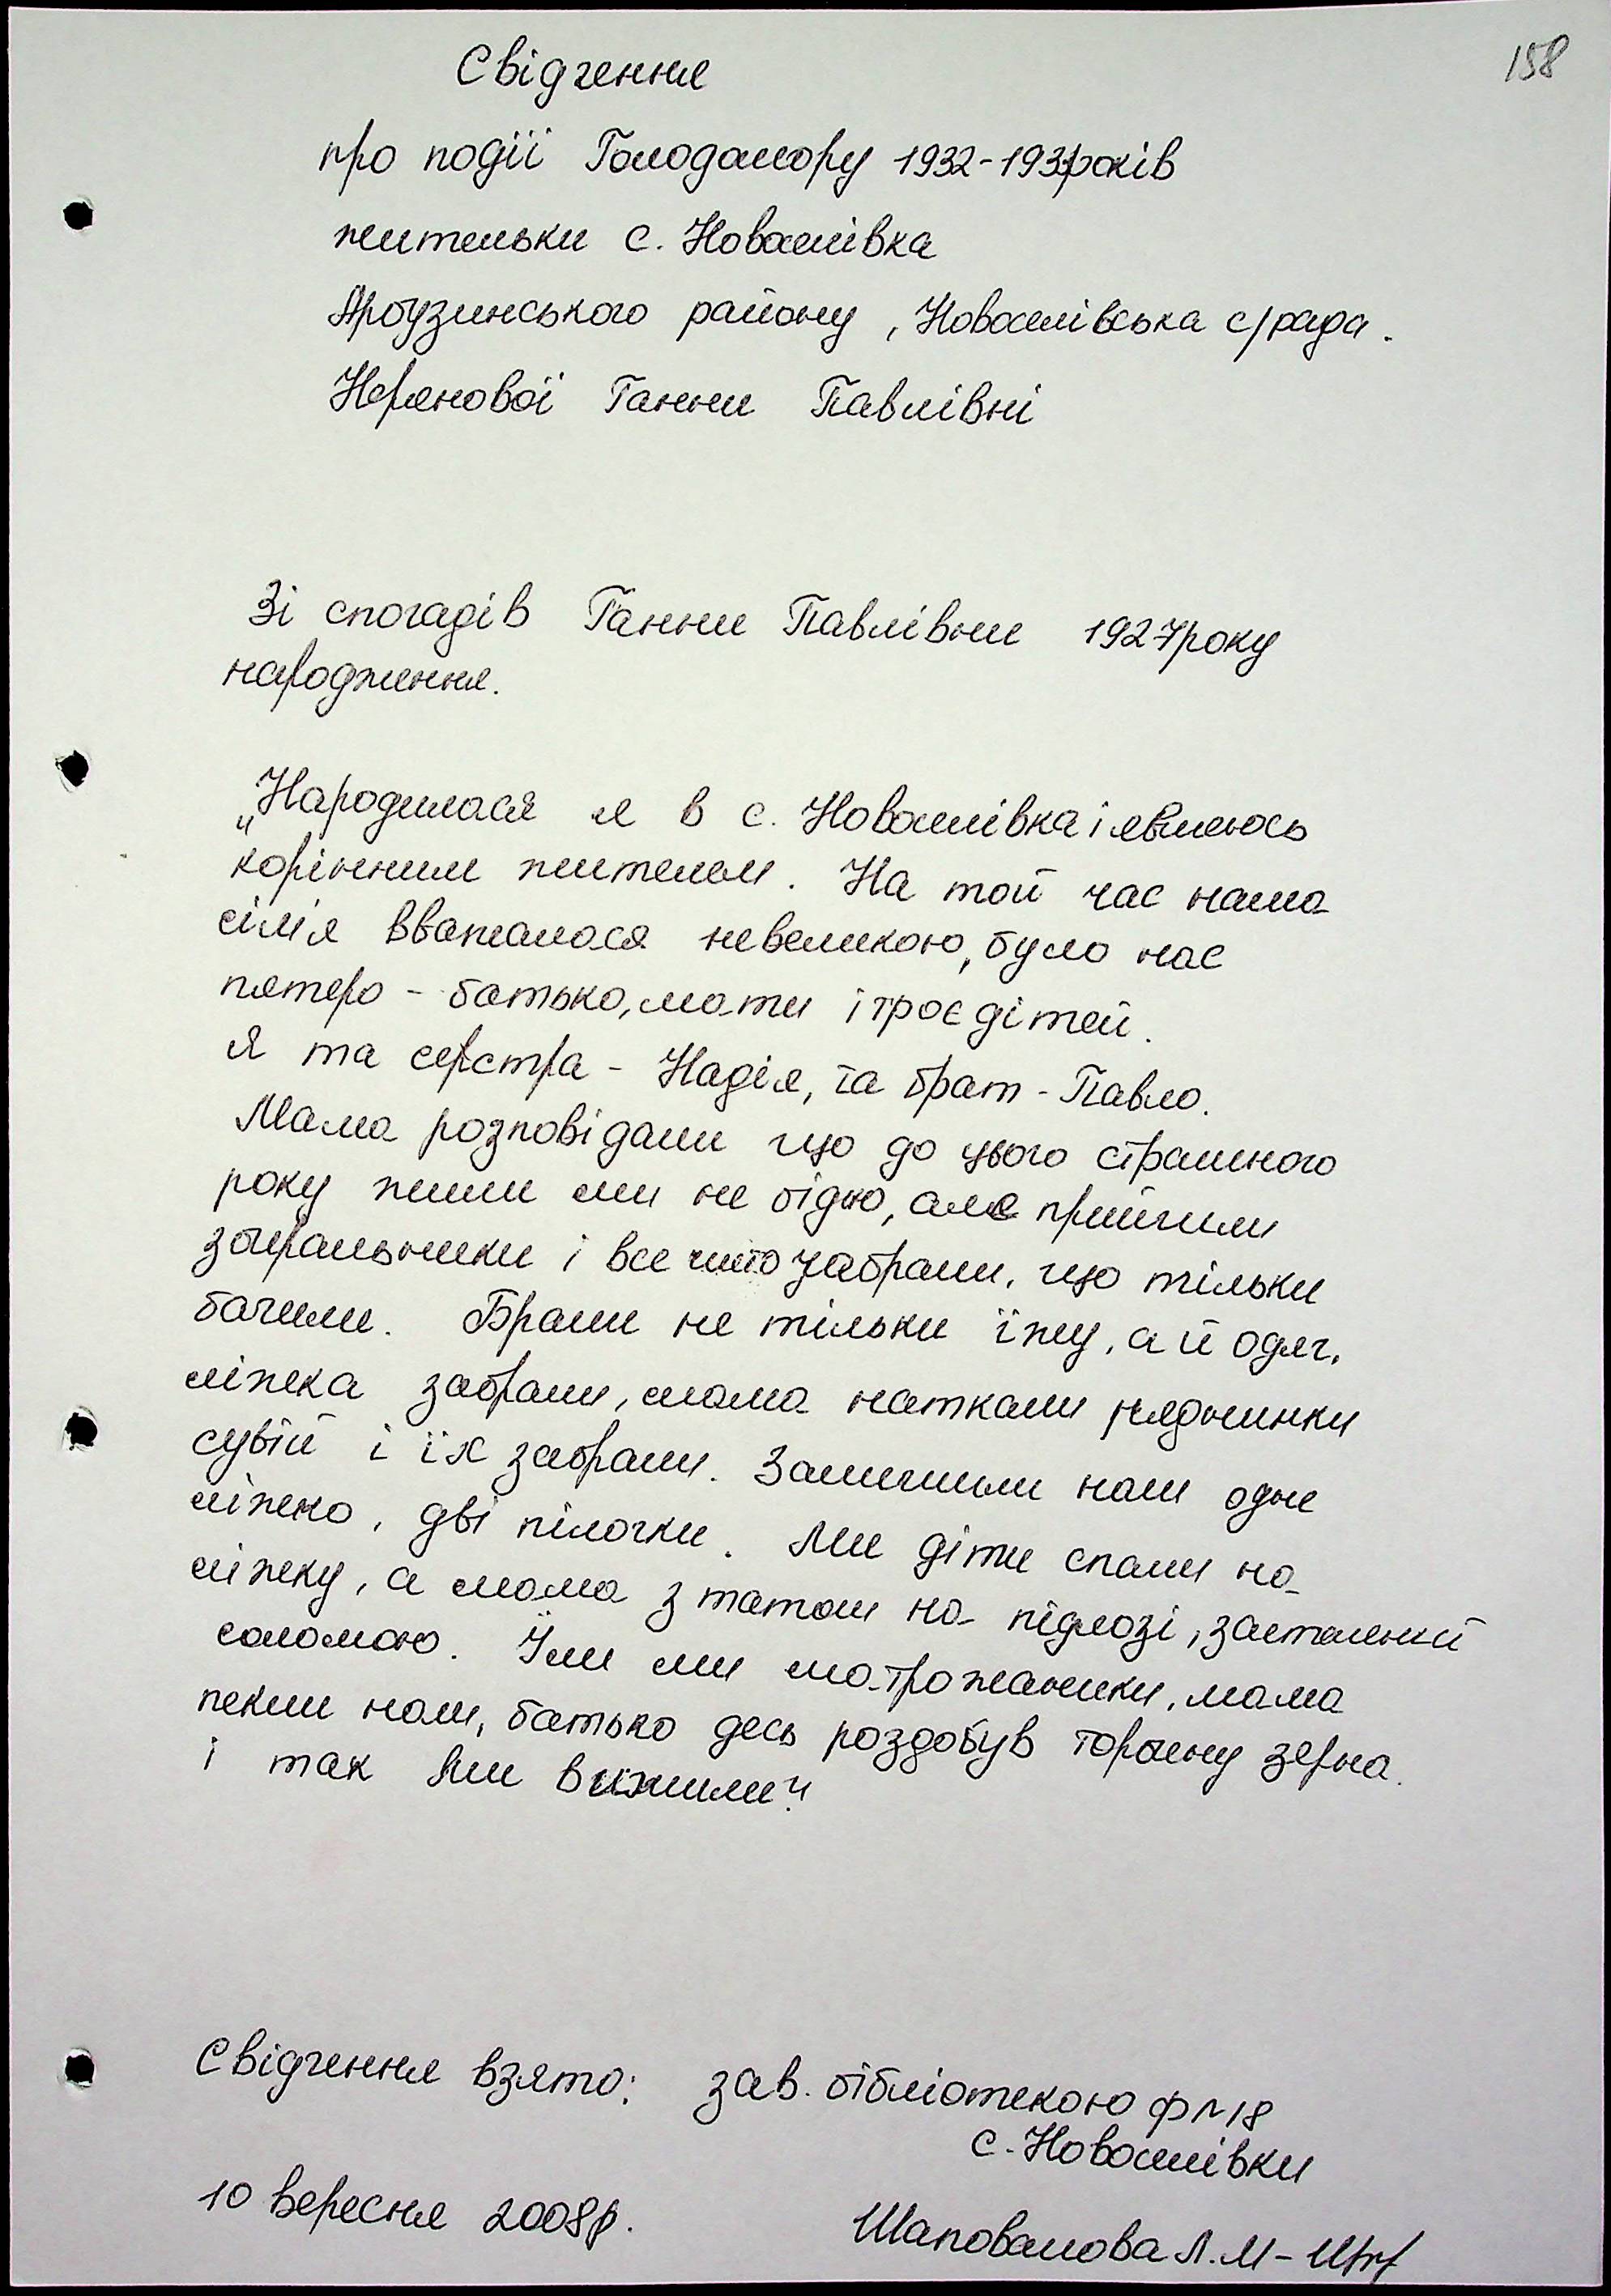 158
Свідчення
про події Голодомору 1932-1933років
жительки с. Новоселівка
Арбузинського району, Новоселівська с/рада.
Ганни Павлівні
Зі спогадів Ганни Павлівни 1927року
народження.
„Народилася я в с. Новоселівка і являюсь
корінним жителем. На той час наша
сімя вважалася невеликою, було нас
пятеро - батько, мати і троє дітей.
Я та серстра - Надія, та брат - Павло.
Мама розповідали що до цього страшного
року жили ми не бідно, але прийшли
збиральники і все чисто забрали, що тільки
бачили. Брали не тільки їжу, а й одяг,
ліжка забрали, мама наткали ряднинки
сувій і їх забрали. Залишили нам одне
ліжко, дві пілочки. Ми діти спали на
ліжку, а мама з татом на підлозі, застеленій
соломою. Їли ми маторжаники, мама
пекли нам, батько десь роздобув торбину зерна.
і так ми вижили."
Свідчення взято: зав. бібліотекою ф №18
с. Новоселівки
10 вересня 2008р.
Шаповалова Л.М -